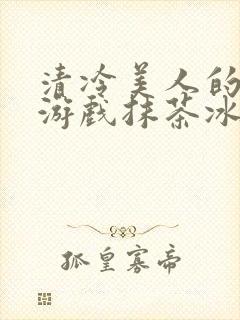 清冷美人的
游戏抹茶冰
孤皇寡帝